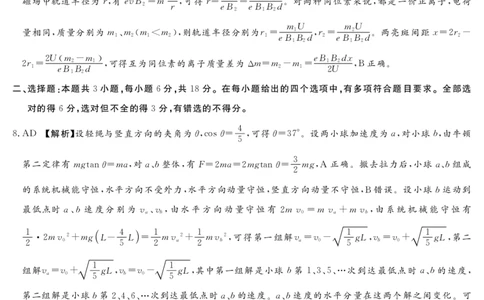 磁场中轨道半径为 r,有 evB₂=m v²/r,可得 r=mv/eB₂=mU/eB₁B₂d。对两种同位素来说,都是一价正离子,电荷
量相同,质量分别为 m₁、m₂(m₁<m₂),则轨道半径分别为 r₁=m₁U/eB₁B₂d,r₂=m₂U/eB₁B₂d。两亮斑间距 x=2r₂-
2r₁=2U(m₂-m₁)/eB₁B₂d,可得互为同位素的离子质量差为 Δm=m₂-m₁=eB₁B₂dx/2U,B正确。
二、选择题:本题共3小题,每小题6分,共18分。在每小题给出的四个选项中,有多项符合题目要求。全部选
对的得6分,选对但不全的得3分,有错选的不得分。
8.AD 【解析】设轻绳与竖直方向的夹角为θ,cos θ=4/5,可得θ=37°。设两小球加速度为a,对小球b,由牛顿
第二定律有 mgtan θ=ma,对a、b整体,有 F=2ma=2mgtan θ=3/2 mg,A正确。撤去拉力后,小球a、b组成
的系统机械能守恒,水平方向不受外力,水平方向动量守恒,竖直方向动量不守恒,B错误。设小球b运动到
最低点时a、b速度分别为 vₐ、v_b,由水平方向动量守恒有 2mv₀=mvₐ+mv_b,由系统机械能守恒有
1/2·2mv₀²+mg(L-4/5 L)=1/2 mvₐ²+1/2 mv_b²,可得第一组解 vₐ=v₀-√(1/5 gL),v_b=v₀+√(1/5 gL),第二
组解 vₐ=v₀+√(1/5 gL),v_b=v₀-√(1/5 gL),其中第一组解是小球b第1、3、5、…次到达最低点时a、b的速度,
第二组解是小球b第2、4、6、…次到达最低点时a、b的速度。a、b速度的水平分量在这两个解之间变化。可